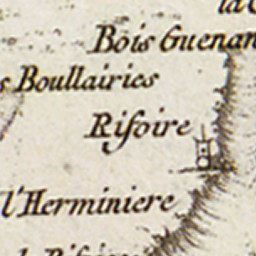 Bois Guenan
s Boullairies
Rifoire
l'Herminiere